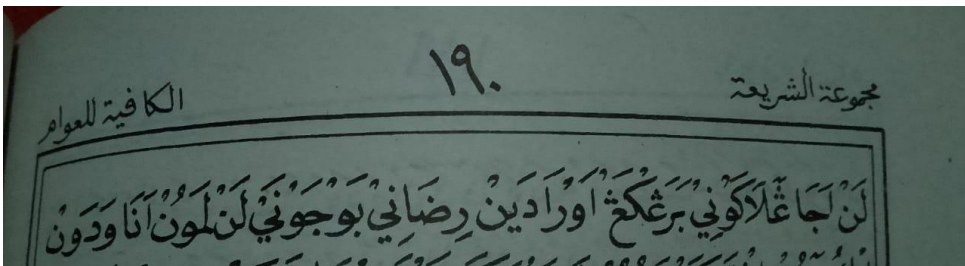 مجموعة الشريعة ١٩٠ الكافية للعوام
لَنْ اَجَا ڠَلَاكَوْنِيْ بَرَڠْكَڠْ اَوْرَا دَيْنْ رِضَانِيْ بَوْجَوْنَيْ لَنْ لَمَوْنْ اَنَا وَدَوْنْ